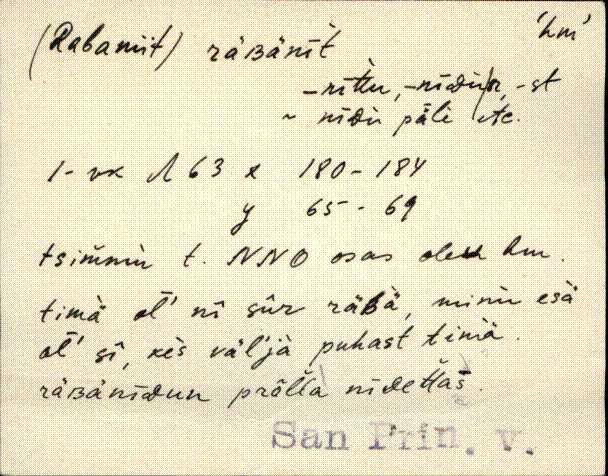 (Rabaniit) räʙänīt́ 'hm'
-nīttu, -nīdun, -st
~ nīdu päle etc.
1-vk N 63 x 180-184
y 65-69
tsimmin t. NNO osas olev hm.
timä ol'l' nī sūr räʙä, minu esä
ol'l' sī, kes väl'jä puhast timä.
räʙänīdun prälla nīdettäs.
San Prin. v.